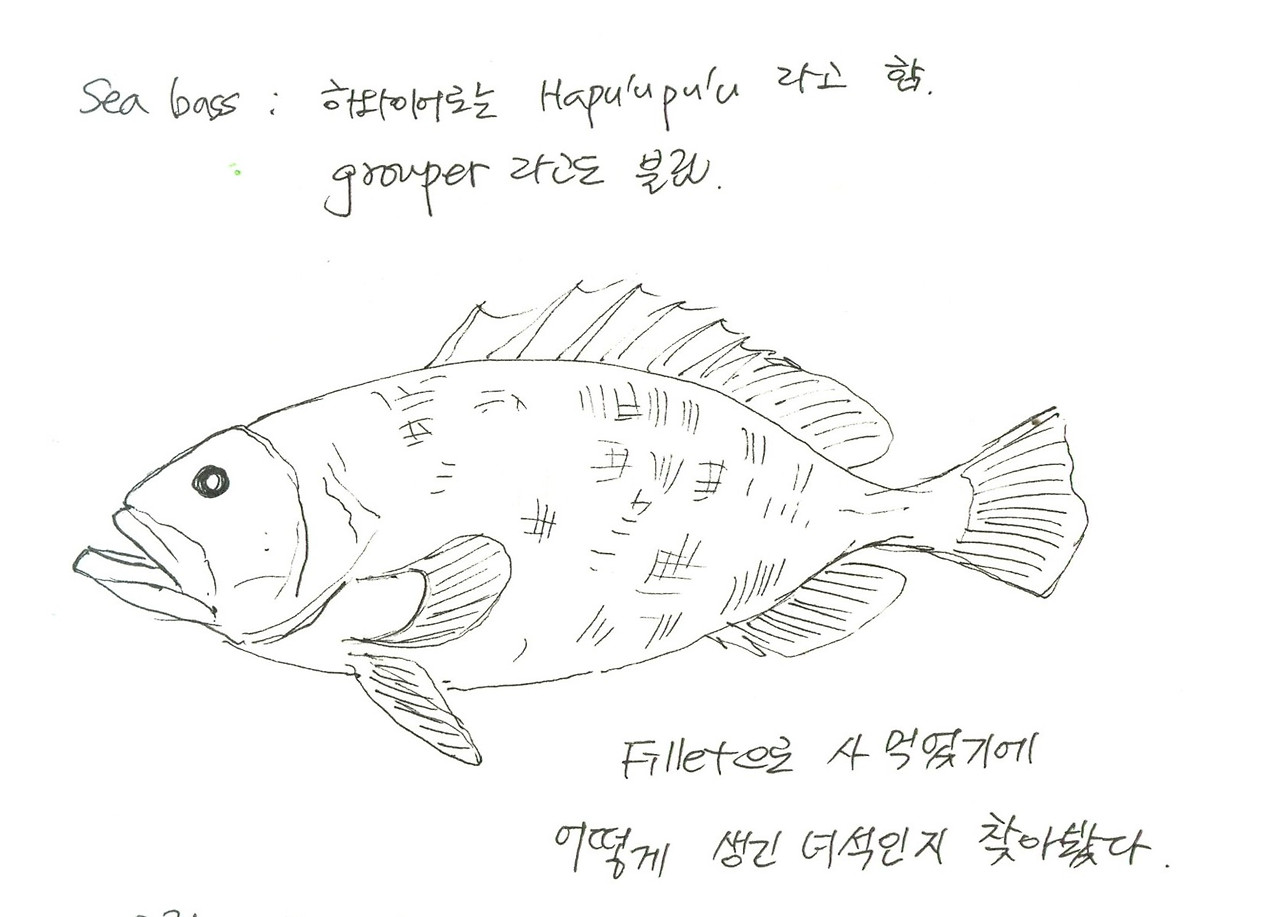 Sea bass : 하와이어로는 Hapu'upu'u 라고 함.
grouper 라고도 불림.
Fillet으로 사 먹었기에
어떻게 생긴 녀석인지 찾아봤다.